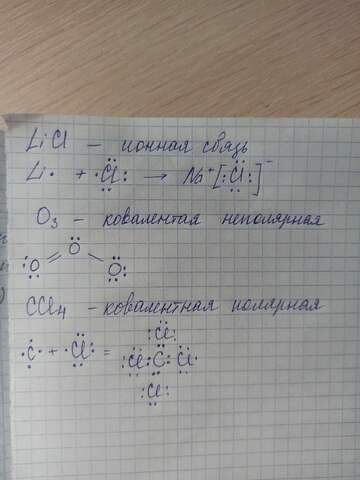 LiCl – ионная связь
Li· + ·C̈l: → Na⁺[:C̈l:]⁻
O₃ – ковалентая неполярная
O
O O
CCl₄ – ковалентная полярная
Cl
·C· + ·Cl: = Cl C Cl
Cl